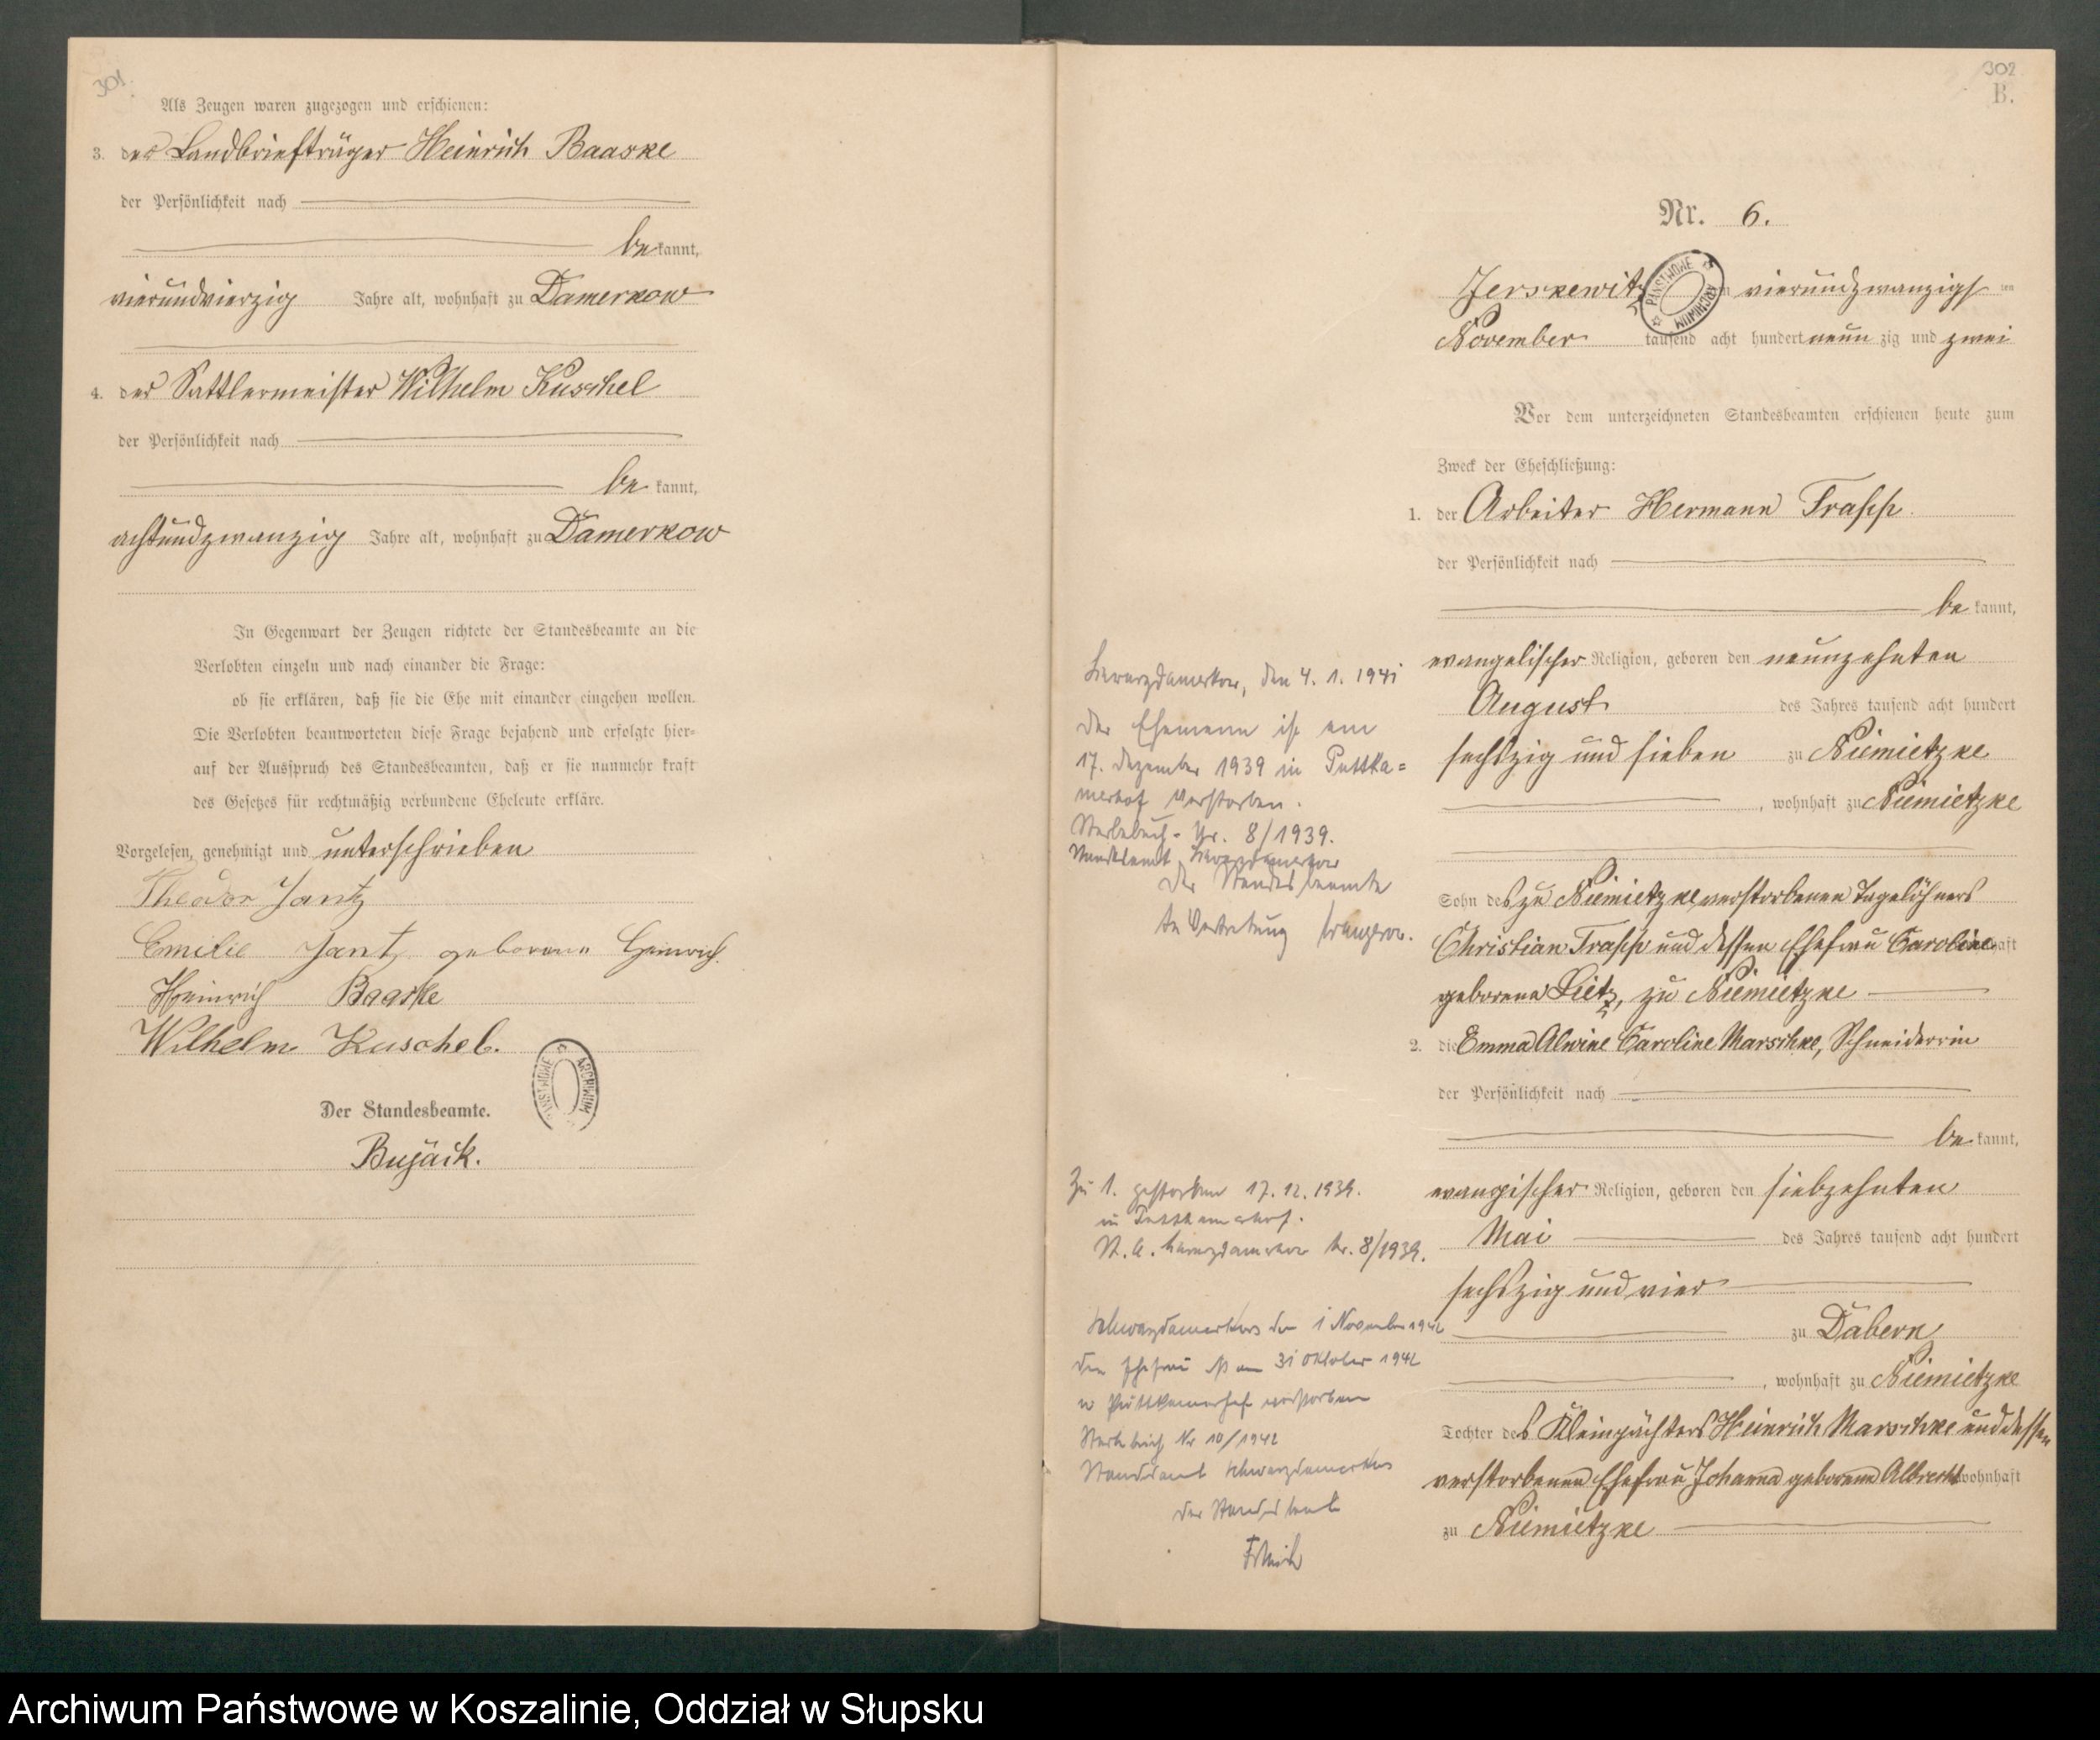 301.
Als Zeugen waren zugezogen und erschienen:
3. der Landbriefträger Heinrich Baaske
der Persönlichkeit nach
be kannt,
vierundvierzig Jahre alt, wohnhaft zu Damerkow
4. der Sattlermeister Wilhelm Kuschel
der Persönlichkeit nach
be kannt,
achtundzwanzig Jahre alt, wohnhaft zu Damerkow
In Gegenwart der Zeugen richtete der Standesbeamte an die
Verlobten einzeln und nach einander die Frage:
ob sie erklären, daß sie die Ehe mit einander eingehen wollen.
Die Verlobten beantworteten diese Frage bejahend und erfolgte hier=
auf der Ausspruch des Standesbeamten, daß er sie nunmehr kraft
des Gesetzes für rechtmäßig verbundene Eheleute erkläre.
Vorgelesen, genehmigt und unterschrieben
Theodor Jantz
Emilie Jantz geborene Heinrich
Heinrich Baaske
Wilhelm Kuschel.
PAŃSTWOWE ARCHIWUM
Der Standesbeamte.
Bujack.
302
B.
Nr. 6.
Jerskewitz vierundzwanzigs ten
PAŃSTWOWE ARCHIWUM
November tausend acht hundert neun zig und zwei
Vor dem unterzeichneten Standesbeamten erschienen heute zum
Zweck der Eheschließung:
1. der Arbeiter Hermann Trapp
der Persönlichkeit nach
be kannt,
evangelischer Religion, geboren den neunzehnten
August des Jahres tausend acht hundert
sechszig und sieben zu Niemietzke
, wohnhaft zu Niemietzke
Sohn des zu Niemietzke verstorbenen Tagelöhners
Christian Trapp und dessen Ehefrau Caroline
geborene Lietz, zu Niemietzke
2. die Emma Alwine Caroline Marschke, Schneiderin
der Persönlichkeit nach
be kannt,
evangischer Religion, geboren den siebzehnten
Mai des Jahres tausend acht hundert
sechszig und vier
zu Dabern
, wohnhaft zu Niemietzke
Tochter des Kleinpächters Heinrich Marschke und dessen
verstorbenen Ehefrau Johanna geborene Albrecht wohnhaft
zu Niemietzke
Schwarzdamerkow, den 4. 1. 1941
Der Ehemann ist am
17. Dezember 1939 in Puttka=
merhof verstorben.
Sterbebuch-Nr. 8/1939.
Standesamt Schwarzdamerkow
Der Standesbeamte
In Vertretung
Zu 1. gestorben 17. 12. 1939.
in Puttkamerhof.
St. A. Schwarzdamerkow Nr. 8/1939.
Schwarzdamerkow den 1 November 1942
Die Ehefrau ist am 31 Oktober 1942
in Puttkamerhof verstorben
Sterbebuch Nr 10/1942
Standesamt Schwarzdamerkow
Der Standesbeamte
Archiwum Państwowe w Koszalinie, Oddział w Słupsku